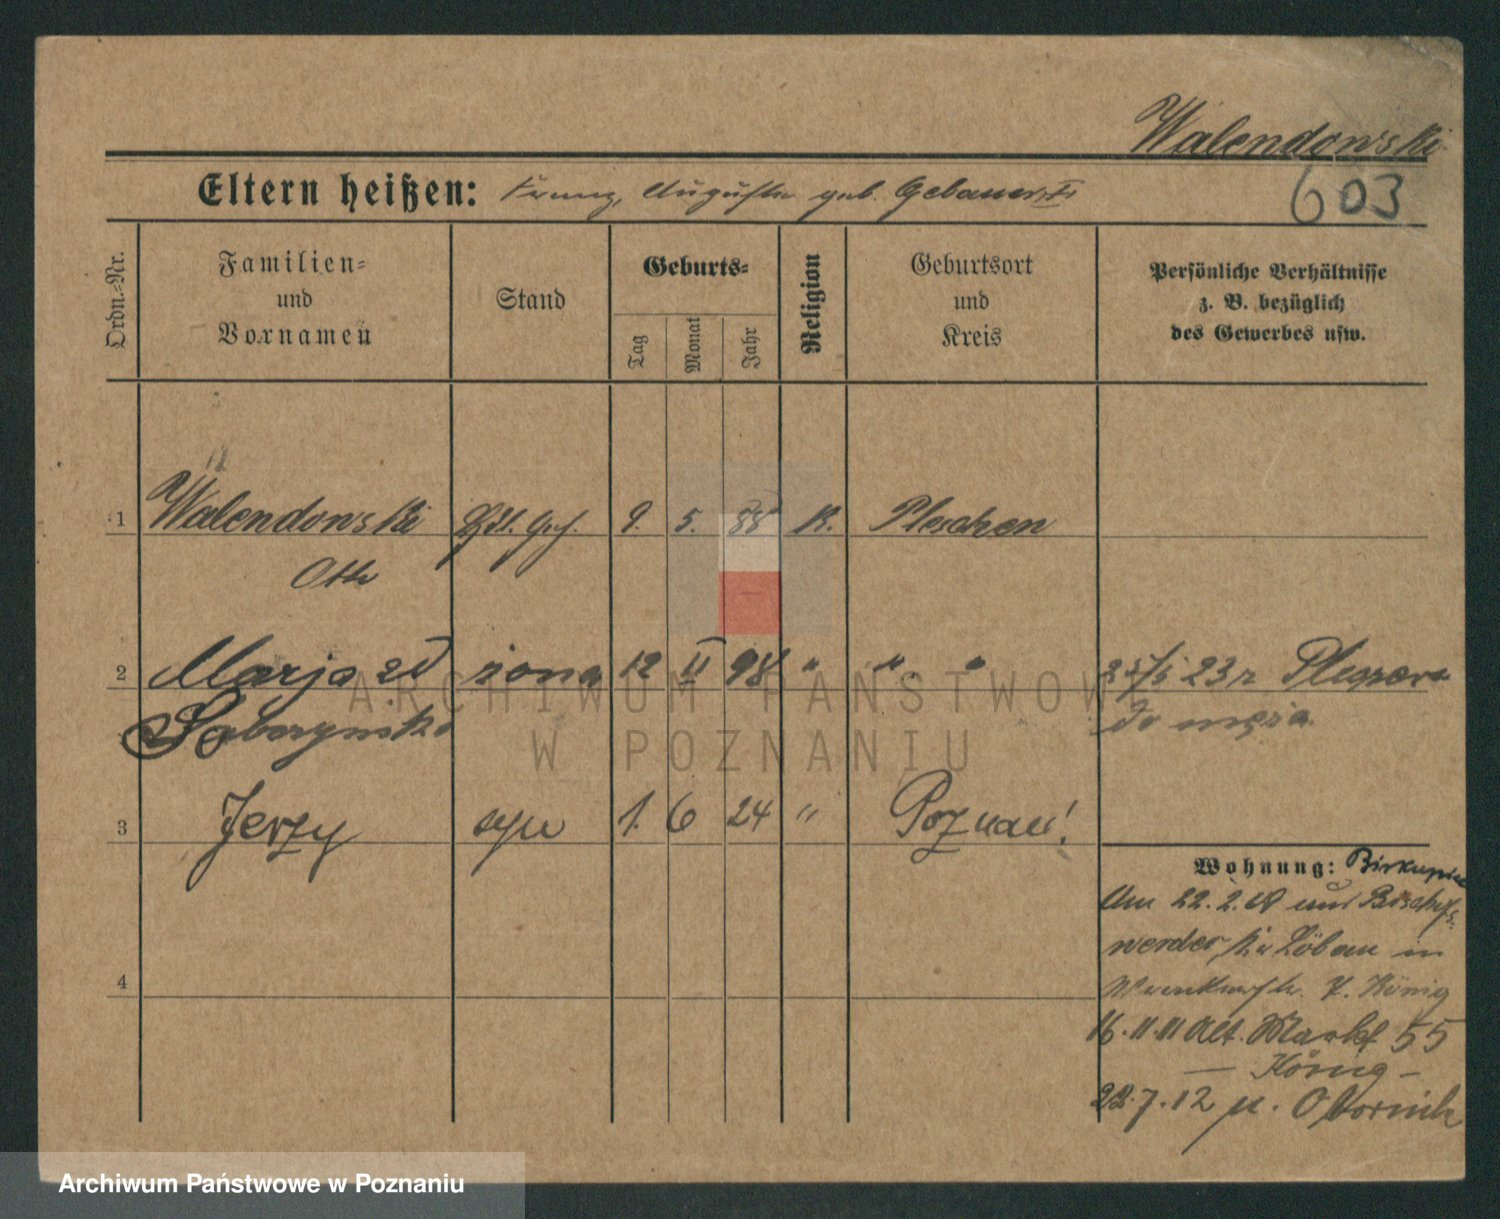 Walendowski
603
Eltern heißen: Franz, Auguste geb. Gebauer
Ordn.-Nr.
Familien-
und
Vornamen
Stand
Geburts-
Tag
Monat
Jahr
Religion
Geburtsort
und
Kreis
Persönliche Verhältnisse
z. B. bezüglich
des Gewerbes usw.
1 Walendowski 9. 5. 88 K. Pleschen
Otto
2 Marja zd żona 12 II 98 " " " 25/5 23 z Pleszewa
do męża
3 Jerzy syn 1. 6 24 " Poznań!
4
Wohnung:
Am 22. 2. von Bischofs-
werder, Kr Löbau in
König
16.11.11 Alt. Markt 55
— König —
22.7.12 n. Obornik
ARCHIWUM PAŃSTWOWE
W POZNANIU
Archiwum Państwowe w Poznaniu